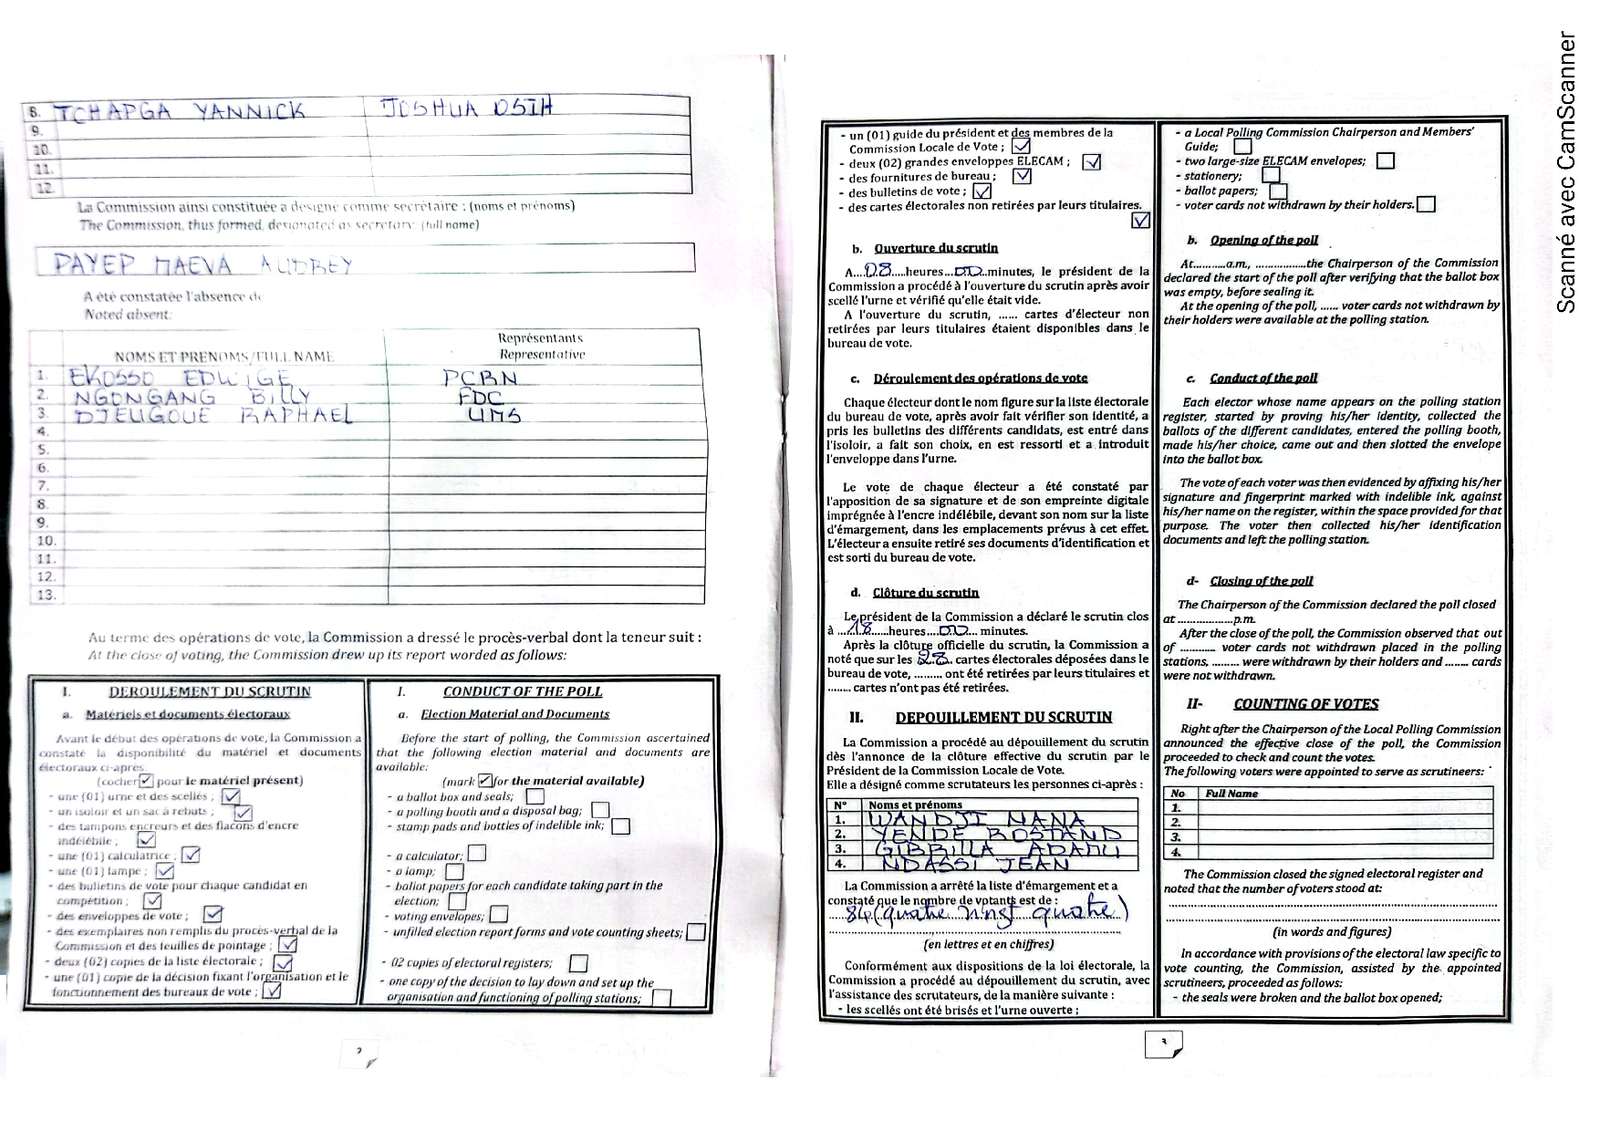 8. TCHAPGA YANNICK JOSHUA OSIH
9.
10.
11.
12.
La Commission ainsi constituée a désigné comme secrétaire : (noms et prénoms)
The Commission, thus formed, designated as secretary: (full name)
PAYEP MAEVA AUDREY
A été constatée l'absence de
Noted absent:
NOMS ET PRENOMS/FULL NAME
Représentants
Representative
1. EKOSSO EDWIGE PCRN
2. NGONGANG BILLY FDC
3. DJEUGOUE RAPHAEL UMS
4.
5.
6.
7.
8.
9.
10.
11.
12.
13.
Au terme des opérations de vote, la Commission a dressé le procès-verbal dont la teneur suit :
At the close of voting, the Commission drew up its report worded as follows:
I. DEROULEMENT DU SCRUTIN
a. Matériels et documents électoraux
Avant le début des opérations de vote, la Commission a
constaté la disponibilité du matériel et documents
électoraux ci-après.
(cocher ☑ pour le matériel présent)
- une (01) urne et des scellés ; ☑
- un isoloir et un sac à rebuts ; ☑
- des tampons encreurs et des flacons d'encre
indélébile ; ☑
- une (01) calculatrice ; ☑
- une (01) lampe ; ☑
- des bulletins de vote pour chaque candidat en
compétition ; ☑
- des enveloppes de vote ; ☑
- des exemplaires non remplis du procès-verbal de la
Commission et des feuilles de pointage ; ☑
- deux (02) copies de la liste électorale ; ☑
- une (01) copie de la décision fixant l'organisation et le
fonctionnement des bureaux de vote ; ☑
I. CONDUCT OF THE POLL
a. Election Material and Documents
Before the start of polling, the Commission ascertained
that the following election material and documents are
available:
(mark ☑ for the material available)
- a ballot box and seals; ☐
- a polling booth and a disposal bag; ☐
- stamp pads and bottles of indelible ink; ☐
- a calculator; ☐
- a lamp; ☐
- ballot papers for each candidate taking part in the
election; ☐
- voting envelopes; ☐
- unfilled election report forms and vote counting sheets; ☐
- 02 copies of electoral registers; ☐
- one copy of the decision to lay down and set up the
organisation and functioning of polling stations; ☐
2
- un (01) guide du président et des membres de la
Commission Locale de Vote ; ☑
- deux (02) grandes enveloppes ELECAM ; ☑
- des fournitures de bureau ; ☑
- des bulletins de vote ; ☑
- des cartes électorales non retirées par leurs titulaires.
☑
b. Ouverture du scrutin
A...08...heures...00...minutes, le président de la
Commission a procédé à l'ouverture du scrutin après avoir
scellé l'urne et vérifié qu'elle était vide.
A l'ouverture du scrutin, ...... cartes d'électeur non
retirées par leurs titulaires étaient disponibles dans le
bureau de vote.
c. Déroulement des opérations de vote
Chaque électeur dont le nom figure sur la liste électorale
du bureau de vote, après avoir fait vérifier son identité, a
pris les bulletins des différents candidats, est entré dans
l'isoloir, a fait son choix, en est ressorti et a introduit
l'enveloppe dans l'urne.
Le vote de chaque électeur a été constaté par
l'apposition de sa signature et de son empreinte digitale
imprégnée à l'encre indélébile, devant son nom sur la liste
d'émargement, dans les emplacements prévus à cet effet.
L'électeur a ensuite retiré ses documents d'identification et
est sorti du bureau de vote.
d. Clôture du scrutin
Le président de la Commission a déclaré le scrutin clos
à ...18...heures...00... minutes.
Après la clôture officielle du scrutin, la Commission a
noté que sur les 28 cartes électorales déposées dans le
bureau de vote, ......... ont été retirées par leurs titulaires et
........ cartes n'ont pas été retirées.
II. DEPOUILLEMENT DU SCRUTIN
La Commission a procédé au dépouillement du scrutin
dès l'annonce de la clôture effective du scrutin par le
Président de la Commission Locale de Vote.
Elle a désigné comme scrutateurs les personnes ci-après :
N° Noms et prénoms
1. WANDJI NANA
2. YENDE ROSTAND
3. GIBRILLA ADAMU
4. NDASSI JEAN
La Commission a arrêté la liste d'émargement et a
constaté que le nombre de votants est de :
84 (quatre vingt quatre)
(en lettres et en chiffres)
Conformément aux dispositions de la loi électorale, la
Commission a procédé au dépouillement du scrutin, avec
l'assistance des scrutateurs, de la manière suivante :
- les scellés ont été brisés et l'urne ouverte ;
- a Local Polling Commission Chairperson and Members'
Guide; ☐
- two large-size ELECAM envelopes; ☐
- stationery; ☐
- ballot papers; ☐
- voter cards not withdrawn by their holders. ☐
b. Opening of the poll
At..........a.m., ................the Chairperson of the Commission
declared the start of the poll after verifying that the ballot box
was empty, before sealing it.
At the opening of the poll, ...... voter cards not withdrawn by
their holders were available at the polling station.
c. Conduct of the poll
Each elector whose name appears on the polling station
register, started by proving his/her identity, collected the
ballots of the different candidates, entered the polling booth,
made his/her choice, came out and then slotted the envelope
into the ballot box.
The vote of each voter was then evidenced by affixing his/her
signature and fingerprint marked with indelible ink, against
his/her name on the register, within the space provided for that
purpose. The voter then collected his/her identification
documents and left the polling station.
d- Closing of the poll
The Chairperson of the Commission declared the poll closed
at ..................p.m.
After the close of the poll, the Commission observed that out
of ........... voter cards not withdrawn placed in the polling
stations, ......... were withdrawn by their holders and ........ cards
were not withdrawn.
II- COUNTING OF VOTES
Right after the Chairperson of the Local Polling Commission
announced the effective close of the poll, the Commission
proceeded to check and count the votes.
The following voters were appointed to serve as scrutineers:
No Full Name
1.
2.
3.
4.
The Commission closed the signed electoral register and
noted that the number of voters stood at:
(in words and figures)
In accordance with provisions of the electoral law specific to
vote counting, the Commission, assisted by the appointed
scrutineers, proceeded as follows:
- the seals were broken and the ballot box opened;
3
Scanné avec CamScanner